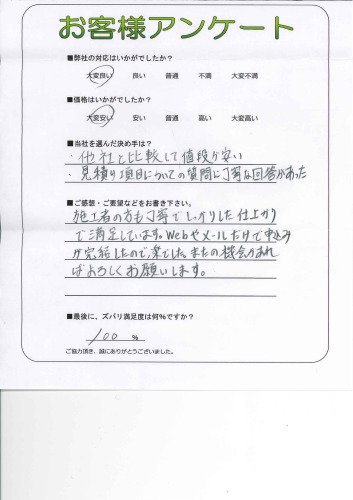 お客様アンケート
■弊社の対応はいかがでしたか?
大変良い 良い 普通 不満 大変不満
■価格はいかがでしたか?
大変安い 安い 普通 高い 大変高い
■当社を選んだ決め手は?
・他社と比較して値段が安い
・見積り項目についての質問に丁寧な回答があった
■ご感想・ご要望などをお書き下さい。
施工者の方も丁寧でしっかりした仕上がり
で満足しています。Webやメールだけで申込み
が完結したので、楽でした。またの機会があれ
ばよろしくお願いします。
■最後に、ズバリ満足度は何%ですか?
100 %
ご協力頂き、誠にありがとうございました。